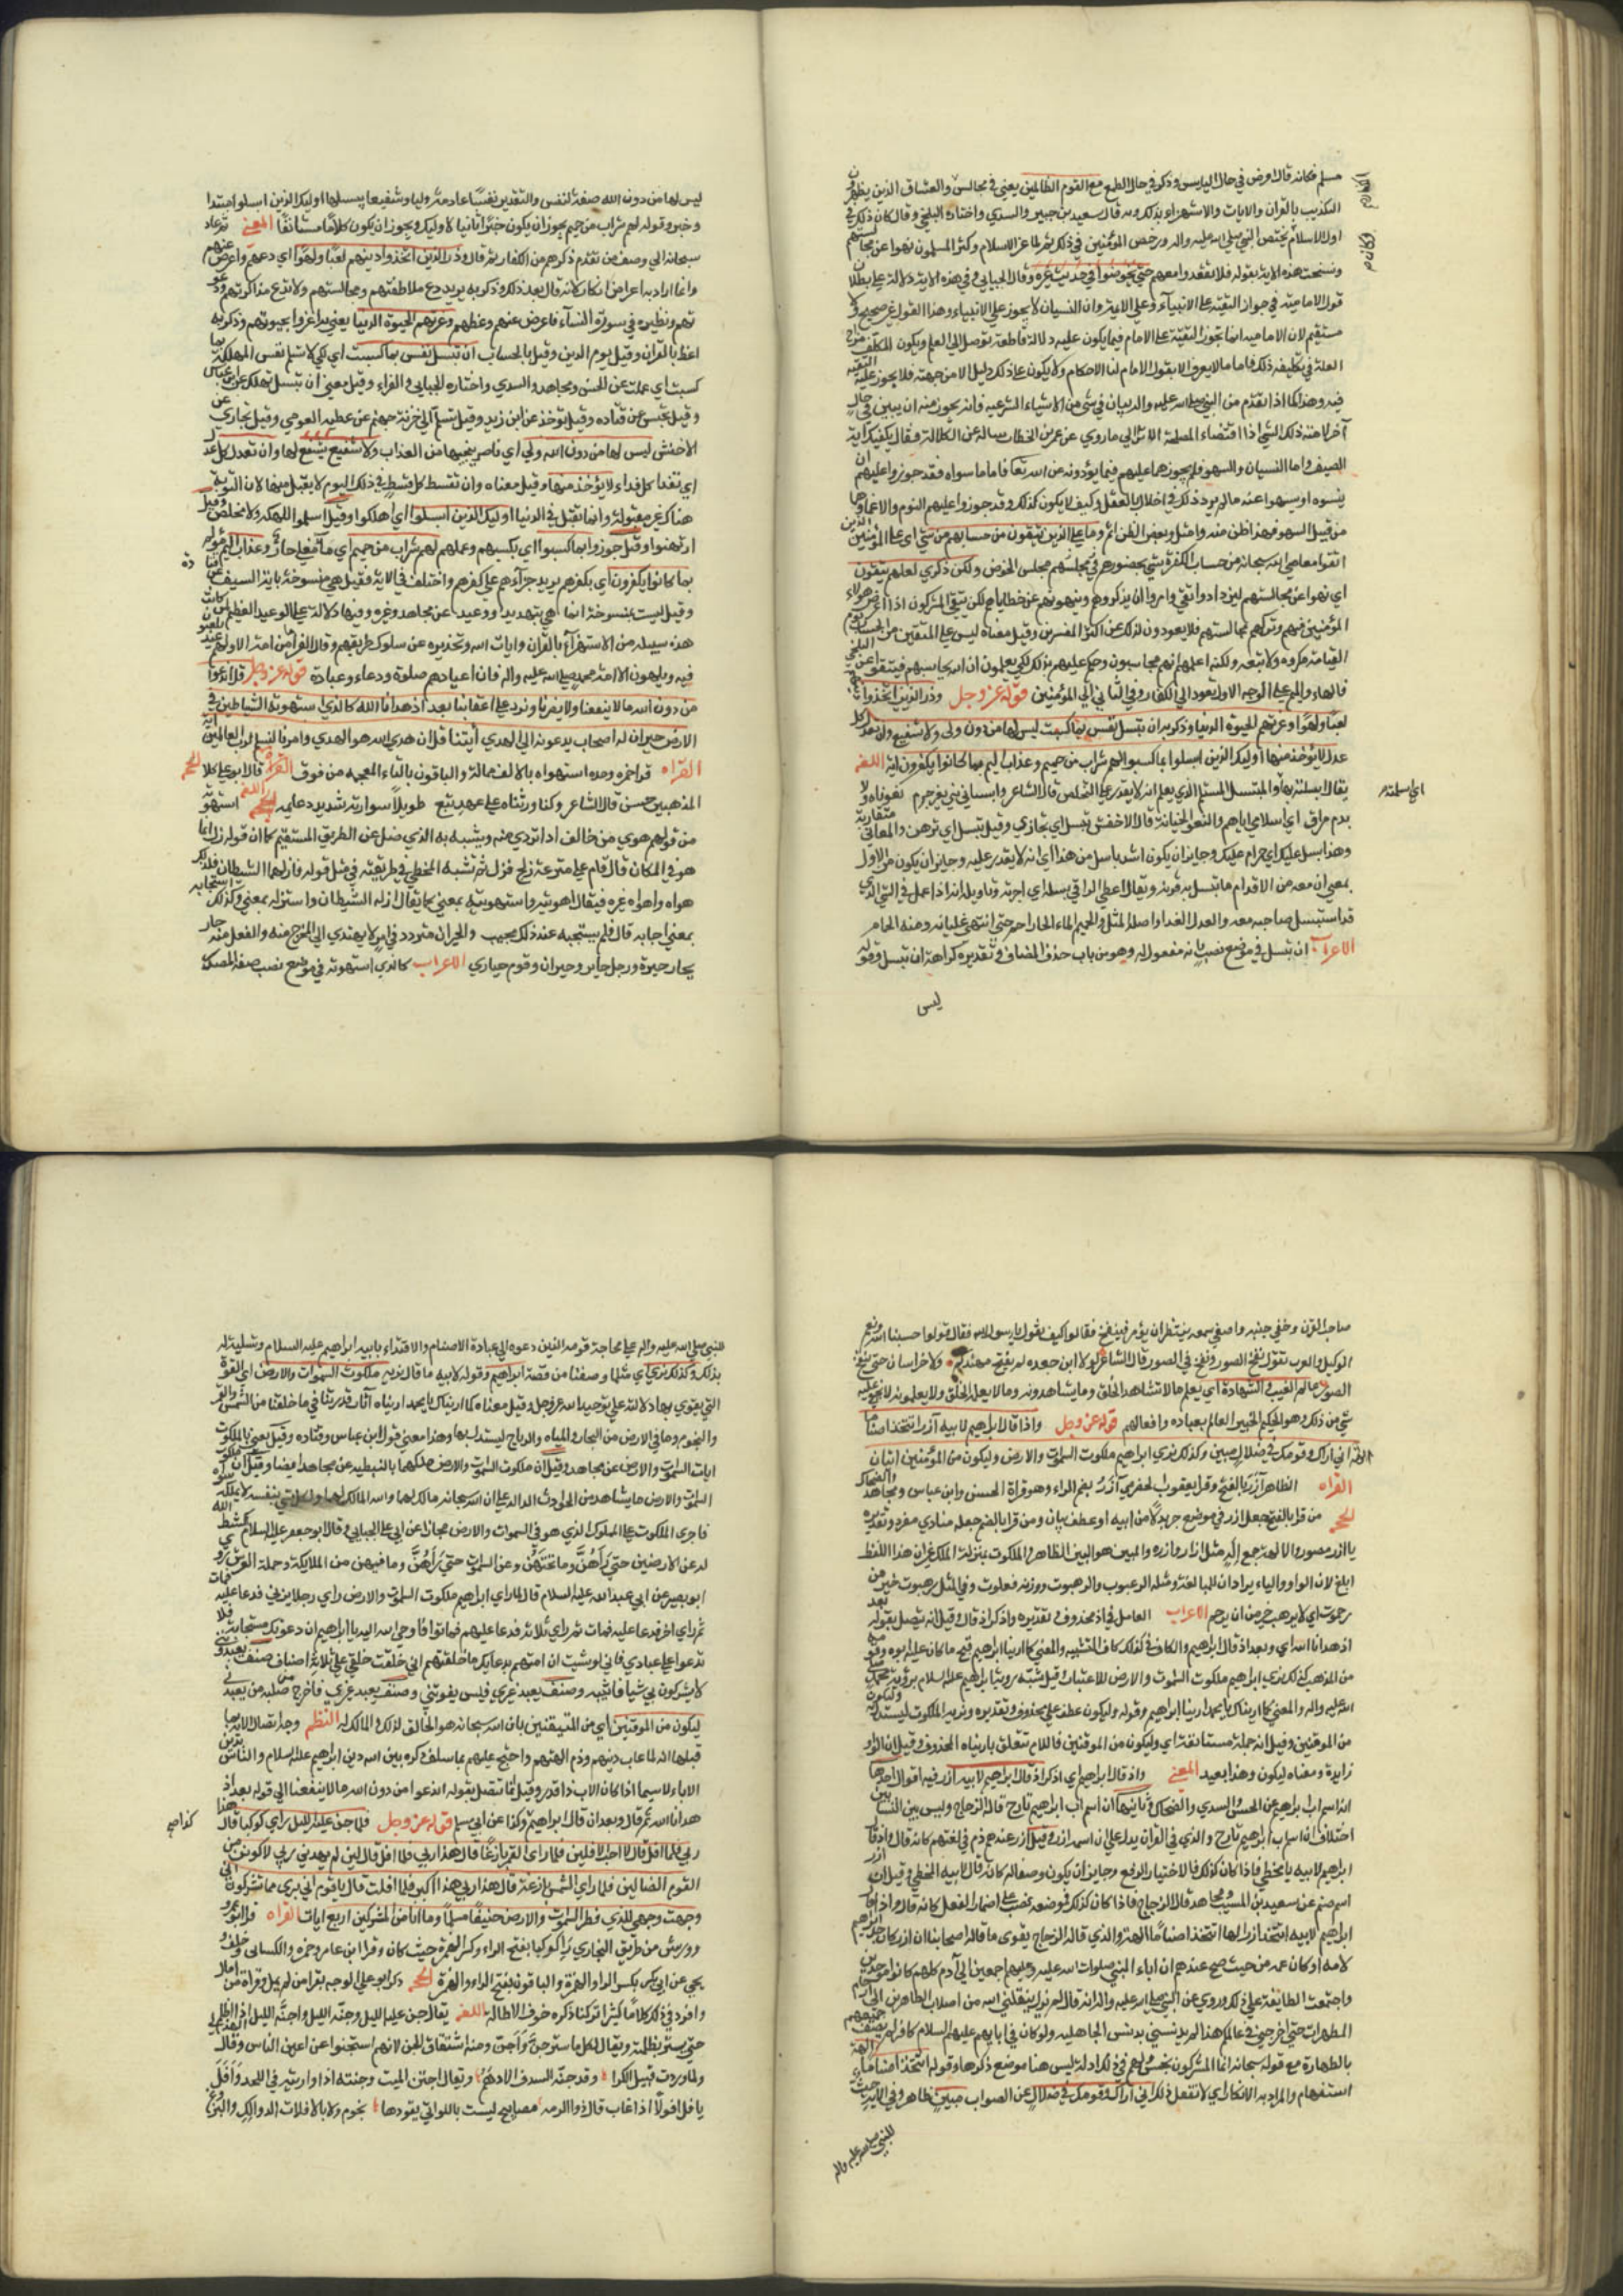 مسلم فكانه قال اعرض في حال الياس وذكر في حال الطمع مع القوم الظالمين يعني في مجالس والعشاق الذين يظهرون
التكذيب بالقران والايات والاستهزاء بذلك وبه قال سعيد بن جبير والسدي واختاره البلخي وقال كان ذلك في
اول الاسلام يختص النبي صلى الله عليه واله ورخص المؤمنين في ذلك ثم لما عز الاسلام وكثر المسلمون نهوا عن مجالستهم
ونسخت هذه الاية بقوله فلا تقعدوا معهم حتى يخوضوا في حديث غيره وقال الجبايي وفي هذه الاية دلالة على بطلان
قول الامامية في جواز التقية على الانبياء وعلى الائمة وان النسيان لا يجوز على الانبياء وهذا القول غير صحيح ولا
مستقيم لان الامامية انما تجوز التقية على الامام فيما يكون عليه دلالة قاطعة توصل الى العلم ويكون المكلف مزاح
العلة في تكليفه ذلك فاما ما لا يعرف الا بقول الامام من الاحكام ولا يكون على ذلك دليل الا من جهته فلا يجوز عليه التقية
فيه وهذا كما اذا تقدم من النبي صلى الله عليه واله بيان في شي من الاشياء الشرعية فانه يجوز منه ان يبين في حال
آخر لامته ذلك الشي اذا اقتضاه المصلحة الا ترى الى ما روي عن عمر بن الخطاب ساله عن الكلالة فقال يكفيك اية
الصيف واما النسيان والسهو فلم يجوزهما عليهم فيما يؤدونه عن الله تعا فاما ما سواه فقد جوزوا عليهم ان
ينسوه او يسهوا عنه مالم يؤد ذلك الى اخلال بالعقل وكيف لا يكون كذلك وقد جوزوا عليهم النوم والاغماء وهما
من قبيل السهو فهذا ظن منه وامثل وبعض الظن اثم وما على الذين يتقون من حسابهم من شي اى على المؤمنين الذين
اتقوا معاصي الله سبحانه من حساب الكفرة بشي بحضورهم في مجلسهم مجلس الخوض ولكن ذكري لعلهم يتقون
اي نهوا عن مجالستهم ليزدادوا تقي وامروا ان يذكروهم وينبهوهم عن خطاياهم لكي يتقي المشركون اذا اعرض هولاء
المؤمنين عنهم وتركهم مجالستهم فلا يعودون لذلك عن اكثر المفسرين وقيل معناه ليس على المتقين من الحساب يوم
القيامة مكروه ولا تبعه ولكنه اعلمهم انهم محاسبون وحكم عليهم بذلك لكي يعلمون ان الله يحاسبهم فيتقوا عن البلخي
فالهاء والميم على الوجه الاول يعود الى الكفار وفي الثاني الى المؤمنين قوله عز وجل وذر الذين اتخذوا دينهم
لعبا ولهوا وغرتهم الحيوة الدنيا وذكر به ان تبسل نفس بما كسبت ليس لها من دون الله ولى ولا شفيع وان تعدل كل
عدل لا يؤخذ منها اوليك الذين ابسلوا بما كسبوا لهم شراب من حميم وعذاب اليم بما كانوا يكفرون اية اللغه
يقال ابسلته بجريرته اي اسلمته والمستبسل المستسلم الذي يعلم انه لا يقدر على التخلص قال الشاعر وابسالي بني بغير جرم بعوناه ولا
بدم مراق اي اسلامي اياهم والبعو الجناية قال الاخفش تبسل اي تجازي وقيل تبسل اي ترهن والمعاني متقاربة
وهذا بسل عليك اي حرام عليك وجايز ان يكون اسد باسل من هذا اي انه لا يقدر عليه وجايز ان يكون من الاول
بمعنى ان معه من الاقدام ما تبسل به قرنه ويقال اعط الراقي بسلته اي اجرته وتاويله انه اذا عمل في الشي الذي
قد استبسل صاحبه معه والعدل الفداء واصله المثل والحميم الماء الحار احم حتى انتهى غليانه ومنه الحمام
الاعراب ان تبسل في موضع نصب بانه مفعول له وهو من باب حذف المضاف وتقديره كراهة ان تبسل وقوله
ليس
ليس لها من دون الله صفة لنفس والتقدير نفسا عادمة وليا وشفيعا يبسلها اوليك الذين ابسلوا مبتدا
وخبر وقوله لهم شراب من حميم يجوز ان يكون خبرا ثانيا لاوليك ويجوز ان يكون كلاما مستانفا المعنى ثم عاد
سبحانه الى وصف من تقدم ذكرهم من الكفار ثم قال وذر الذين اتخذوا دينهم لعبا ولهوا اي دعهم واعرض عنهم
وانما اراد به اعراض انكار لانه قال بعد ذلك وذكر به يريد دع ملاطفتهم ومجالستهم ولا تدع مذاكرتهم ودعو
تهم ونظيره في سورة النساء فاعرض عنهم وعظهم وغرتهم الحيوة الدنيا يعني بها اغتروا بحيوتهم وذكر به
اعظ بالقران وقيل بيوم الدين وقيل بالحساب ان تبسل نفس بما كسبت اي لكي لا تسلم نفس للهلكة بما
كسبت اي عملت عن الحسن ومجاهد والسدي واختاره الجبايي والفراء وقيل معني ان تبسل تهلك عن ابن عباس
وقيل تحبس عن قتاده وقيل تؤخذ عن ابن زيد وقيل تسلم الى خزنة جهنم عن عطية العوفي وقيل تجازى عن
الاخفش ليس لها من دون الله ولي اي ناصر ينجيها من العذاب ولا شفيع يشفع لها وان تعدل كل عدل
اي تفد كل فداء لا يؤخذ منها وقيل معناه وان تقسط كل قسط في ذلك اليوم لا يقبل منها لان التوبة
هناك غير مقبولة وانما تقبل في الدنيا اوليك الذين ابسلوا اي اهلكوا وقيل اسلموا للهلكة ولا مخلص وقيل
ارتهنوا وقيل جوزوا بما كسبوا اي بكسبهم وعملهم لهم شراب من حميم اي ماء مغلي حار وعذاب اليم مؤلم
بما كانوا يكفرون اي بكفرهم يريد جزاء لهم على كفرهم واختلف في الاية فقيل هي منسوخة باية السيف عن قتاده
وقيل ليست بمنسوخة انما هي تهديد ووعيد عن مجاهد وغيره وفيها دلالة على الوعيد العظيم لمن كانت
هذه سبيله من الاستهزاء بالقران وايات الله وتحذيره عن سلوك طريقهم وقال الفراء ما من امة الا ولهم عيد يلعبون
فيه ويلهون الا امة محمد صلى الله عليه واله فان اعيادهم صلوة ودعاء وعبادة قوله عز وجل قل اندعوا
من دون الله ما لا ينفعنا ولا يضرنا ونرد على اعقابنا بعد اذ هدانا الله كالذي استهوته الشياطين في
الارض حيران له اصحاب يدعونه الى الهدي أيتنا قل ان هدي الله هو الهدي وامرنا لنسلم لرب العالمين اية
القراه قرا حمزه وحده استهواه بالالف ممالة والباقون بالتاء المعجمه من فوق قال ابو علي كلا الحجه
المذهبين حسن قال الشاعر وكنا ورثناه على عهد تبع طويلا سواريه شديد دعايمه اللغه استهوته
من قولهم هوي من حالق اذا تردي منه ويشبه به الذي ضل عن الطريق المستقيم كما ان قوله زل انما
هو في المكان قال قام على منزعة زلج فزل ثم تشبه المخطي في طريقته في مثل قوله فازلهما الشيطان فكذلك
هواه واهواه غيره فيقال اهويته واستهويته بمعنى كما يقال ازله الشيطان واستزله بمعني وكذلك استجابه
بمعني اجابه قال فلم يستجبه عند ذلك مجيب والحيران متردد في امر لا يهتدي الى المخرج منه والفعل منه حار
يحار حيرة ورجل حاير وحيران وقوم حياري الاعراب كالذي استهوته في موضع نصب صفة لمصدر
صاحب القرن وحنى جبينه واصغي سمعه ينتظر ان يؤمر فينفخ فقالوا كيف نقول يا رسول الله فقال قولوا حسبنا الله ونعم
الوكيل والعرب تقول نفخ الصور ونفخ في الصور قال الشاعر لولا ابن جعده لم يفتح قهندزكم ولا خراسان حتى ينفخ
الصور عالم الغيب والشهادة اي يعلم ما لا تشاهد الخلق وما يشاهدونه وما لا يعلم الخلق ولا يعلمونه لا يخفى عليه
شي من ذلك وهو الحكيم الخبير العالم بعباده وافعالهم قوله عز وجل واذ قال ابراهيم لابيه آزر اتتخذ اصناما
الهة اني اراك وقومك في ضلال مبين وكذلك نري ابراهيم ملكوت السموات والارض وليكون من الموقنين ايتان
القراه الظاهر آزر بالفتح وقرا يعقوب الحضرمي آزر بضم الراء وهو قراءة الحسن وابن عباس ومجاهد والضحاك
الحجه من قرا بالفتح جعل ازر في موضع جر بدلا من ابيه او عطف بيان ومن قرا بالضم جعله منادي مفرد وتقديره
يا ازر
ابلغ لان الواو والياء يزادان للمبالغة ومثله الرغبوت والرهبوت ووزنه فعلوت وفي المثل رهبوت خير من
رحموت اي لان ترهب خير من ان ترحم الاعراب العامل في اذ محذوف وتقديره واذكر اذ قال وقيل انه تتصل بقوله بعد
اذ هدانا الله اي وبعد اذ قال ابراهيم والكاف في كذلك كاف التشبيه والمعني كما ارينا ابراهيم قبح ما كان عليه ابوه وقومه
من المذهب كذلك نري ابراهيم ملكوت السموات والارض للاعتبار وقيل شبه رويه ابراهيم عليه السلام برؤية محمد صلى
الله عليه واله والمعني كما اريناك يا محمد ارينا ابراهيم وقوله وليكون عطف على محذوف وتقديره ونريه الملكوت ليستدل به وليكون
من الموقنين وقيل انه جملة مستانفة اي وليكون من الموقنين فاللام تتعلق باريناه المحذوف وقيل ان الواو
زايدة ومعناه ليكون وهذا بعيد المعنى واذ قال ابراهيم اي اذكر اذ قال ابراهيم لابيه ازر فيه اقوال احدها
انه اسم اب ابراهيم عن الحسن والسدي والضحاك وثانيها ان اسم اب ابراهيم تارح قاله الزجاج وليس بين النسابين
اختلاف ان اسم اب ابراهيم تارح والذي في القران يدل على ان اسمه ازر وقيل ازر عندهم ذم في لغتهم كانه قال واذ قال
ابراهيم لابيه يا مخطي فاذا كان كذلك فالاختيار الرفع وجايز ان يكون وصفا له كانه قال لابيه المخطي وقيل ان ازر
اسم صنم عن سعيد بن المسيب ومجاهد قال الزجاج فاذا كان كذلك فموضعه نصب على اضمار الفعل كانه قال واذ قال
ابراهيم لابيه اتتخذ ازر الها اتتخذ اصناما الهة والذي قاله الزجاج يقوى ما قاله اصحابنا ان ازر كان جد ابراهيم
لامه او كان عمه من حيث صح عندهم ان اباء النبي صلوات الله عليه وعليهم اجمعين الى آدم كلهم كانوا موحدين
واجتمعت الطايفة على ذلك وروي عن النبي صلى الله عليه واله انه قال لم يزل ينقلني الله من اصلاب الطاهرين الى ارحام
المطهرات حتى اخرجني في عالمكم هذا لم يدنسني بدنس الجاهلية ولو كان في ابايهم عليهم السلام كافر لم يصف جميعهم
بالطهارة مع قوله سبحانه انما المشركون نجس ولهم في ذلك ادلة ليس هنا موضع ذكرها وقوله اتتخذ اصناما الهة
استفهام والمراد به الانكار اي لا تفعل ذلك اني اراك وقومك في ضلال عن الصواب مبين ظاهر وفي الاية حث
للنبي صلى الله عليه واله
للنبي صلى الله عليه واله على محاجة قومه الذين دعوه الى عبادة الاصنام والاقتداء بابيه ابراهيم عليه السلام وتسلية له
بذلك وكذلك نري اي مثلما وصفنا من قصة ابراهيم وقوله لابيه ما قال نريه ملكوت السموات والارض اي القدرة
التي يقوي بها دلالته على توحيد الله عز وجل وقيل معناه كما اريناك يا محمد اريناه آثار قدرتنا في ما خلقنا من الشمس والقمر
والنجوم وما في الارض من البحار والمياه والرياح ليستدل بها وهذا معني قول ابن عباس وقتاده وقيل يعني بالملكوت
ايات السموات والارض عن مجاهد وقيل ان ملكوت السموات والارض ملكهما بالنبطية عن مجاهد ايضا وقيل ان ملكوت
السموات والارض ما يشاهد من الحوادث الدالة على ان الله سبحانه مالك لهما
فاجرى الملكوت على المملوك الذي هو في السموات والارض مجازا عن ابي علي الجبايي وقال ابو جعفر عليه السلام كشط الله
له عن الارضين حتى رآهن وما تحتهن وعن السموات حتى رآهن وما فيهن من الملايكة وحملة العرش وروى
ابو بصير عن ابي عبد الله عليه السلام قال لما راي ابراهيم ملكوت السموات والارض راي رجلا يزني فدعا عليه فمات
ثم راي اخر فدعا عليه فمات ثم راي ثلاثة فدعا عليهم فماتوا فاوحي الله اليه يا ابراهيم ان دعوتك مستجابة فلا
تدعوا على عبادي فاني لو شيت ان اميتهم بدعايك ما خلقتهم اني خلقت خلقي على ثلاثة اصناف صنف يعبدوني
لا يشركون بي شيا فاثيبه وصنف يعبد غيري فليس يفوتني وصنف يعبد غيري فاخرج من صلبه من يعبدني
ليكون من الموقنين اي من المتيقنين بان الله سبحانه هو الخالق لذلك والمالك له النظم وجه اتصال الاية بما
قبلها انه لما عاب دينهم وذم الهتهم واحتج عليهم بما سلف ذكره بين الله دين ابراهيم عليه السلام والناس
الاباء لا سيما اذا كان الاب ذا قدر وقيل انها تتصل بقوله اندعوا من دون الله ما لا ينفعنا الى قوله بعد اذ
هدانا الله ثم قال وبعد ان قال ابراهيم وكذا عن ابي مسلم قوله عز وجل فلما جن عليه الليل راي كوكبا قال هذا
ربي فلما افل قال لا احب الافلين فلما راى القمر بازغا قال هذا ربي فلما افل قال لين لم يهدني ربي لاكونن من
القوم الضالين فلما راي الشمس بازغة قال هذا ربي هذا اكبر فلما افلت قال يا قوم اني بري مما تشركون اني
وجهت وجهي للذي فطر السموات والارض حنيفا مسلما وما انا من المشركين اربع ايات القراه قرا ابو عمرو
وورش من طريق البخاري راي كوكبا بفتح الراء وكسر الهمزة حيث كان وقرا ابن عامر وحمزه والكسائي وخلف
يحيى عن ابي بكر بكسر الراء والهمزة والباقون بفتح الراء والهمزة الحجه ذكر ابو علي الوجه بقراءة من لم يمل وقراءة من امال
وافرد في ذلك كلاما كثيرا تركنا ذكره خوف الاطالة اللغه يقال جن عليه الليل وجنه الليل واجنه الليل اذا اظلم
حتى يستر بظلمته ويقال لكل ما ستر جن واجن ومنه اشتقاق الجن لانهم استجنوا عن اعين الناس وقال
ولما وردت قبيل الكرا وقد جنه السدف الادهم ويقال اجننت الميت وجننته اذا واريته في اللحد وافل
يافل افولا اذا غاب قال ذو الرمه مصابيح ليست باللواتي يقودها نجوم ولا بالافلات الدوالك والبزوغ